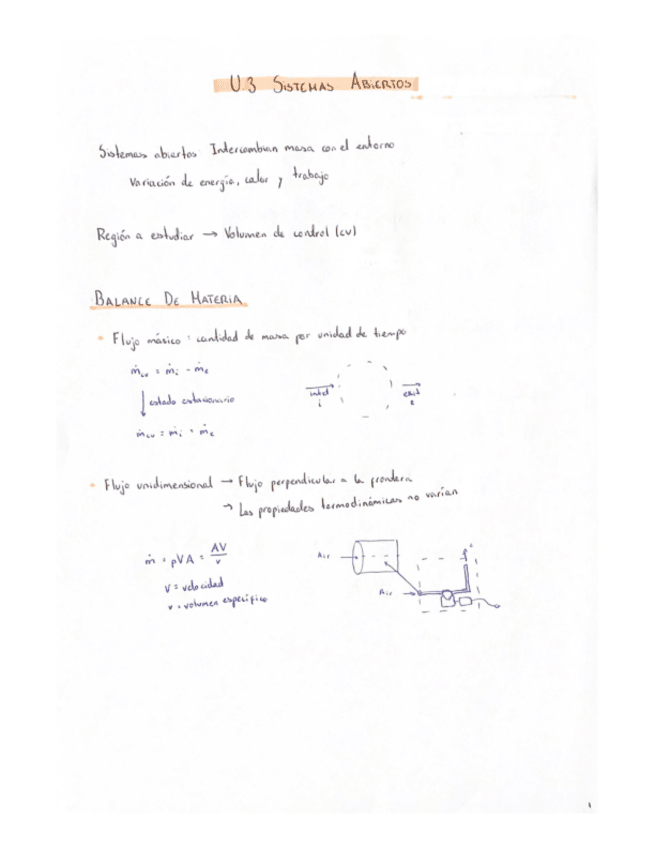 U.3 SISTEMAS ABIERTOS
Sistemas abiertos: Intercambian masa con el entorno
Variación de energía, calor y trabajo
Región a estudiar → Volumen de control (cv)
BALANCE DE MATERIA
• Flujo másico: cantidad de masa por unidad de tiempo
ṁcv = ṁi - ṁe
↓ estado estacionario
inlet
i
exit
e
ṁcv = ṁi = ṁe
• Flujo unidimensional → Flujo perpendicular a la frontera
→ Las propiedades termodinámicas no varían
ṁ = ρVA = AV/v
V = velocidad
v = volumen específico
Air
Air
1